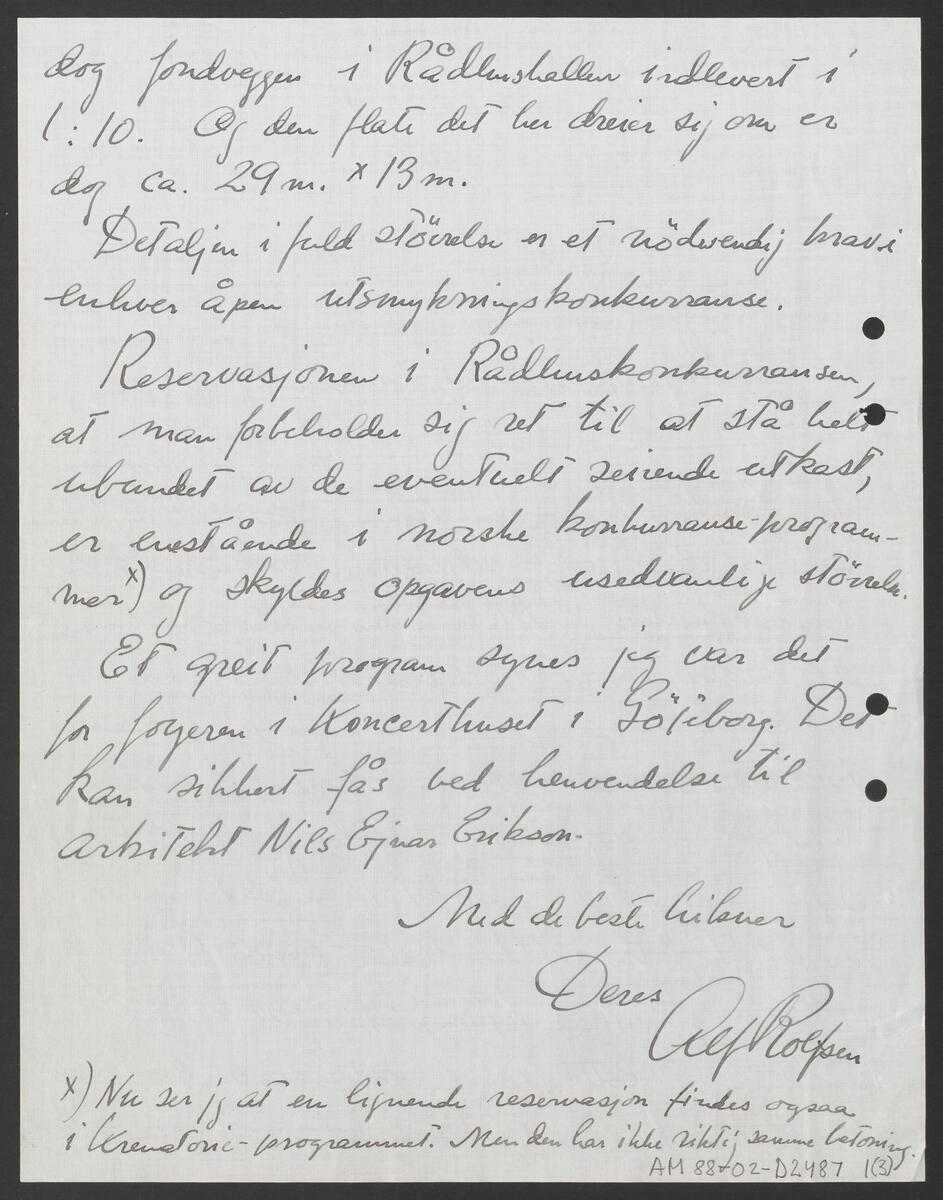 dog fondveggen i Rådhushallen indlevert i
1:10. Og den flate det her dreier sig om er
dog ca. 29 m. x 13 m.
Detaljen i fuld störrelse er et nödvendig krav i
enhver åpen utsmykningskonkurranse.
Reservasjonen i Rådhuskonkurransen,
at man forbeholder sig ret til at stå helt
ubundet av de eventuelt seirende utkast,
er enestående i norske konkurranse-program-
mer x) og skyldes opgavens usedvanlige störrelse.
Et greit program synes jeg var det
for foyeren i Koncerthuset i Göteborg. Det
kan sikkert fås ved henvendelse til
arkitekt Nils Ejnar Erikson.
Med de beste hilsner
Deres
Alf Rolfsen
x) Nu ser jeg at en lignende reservasjon findes ogsaa
i Krematorie-programmet. Men den har ikke riktig samme betoning.
AM 88-02-D2487 1(3)